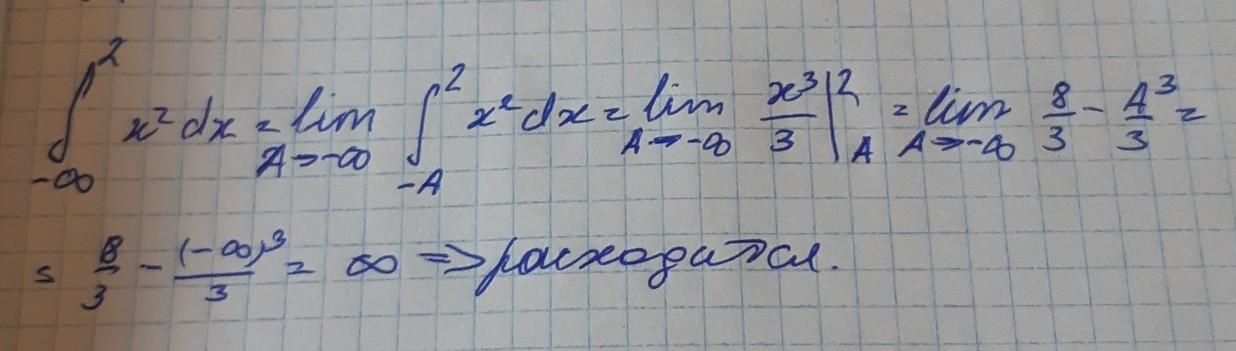 ∫_{-∞}^{2} x² dx = lim_{A→-∞} ∫_{-A}^{2} x² dx = lim_{A→-∞} x³/3 |_{A}^{2} = lim_{A→-∞} 8/3 - A³/3 =
= 8/3 - (-∞)³/3 = ∞ => расходится.